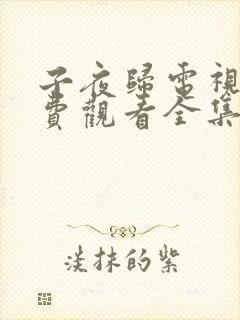 子夜歸電視
費觀看全集
淡抹的紫